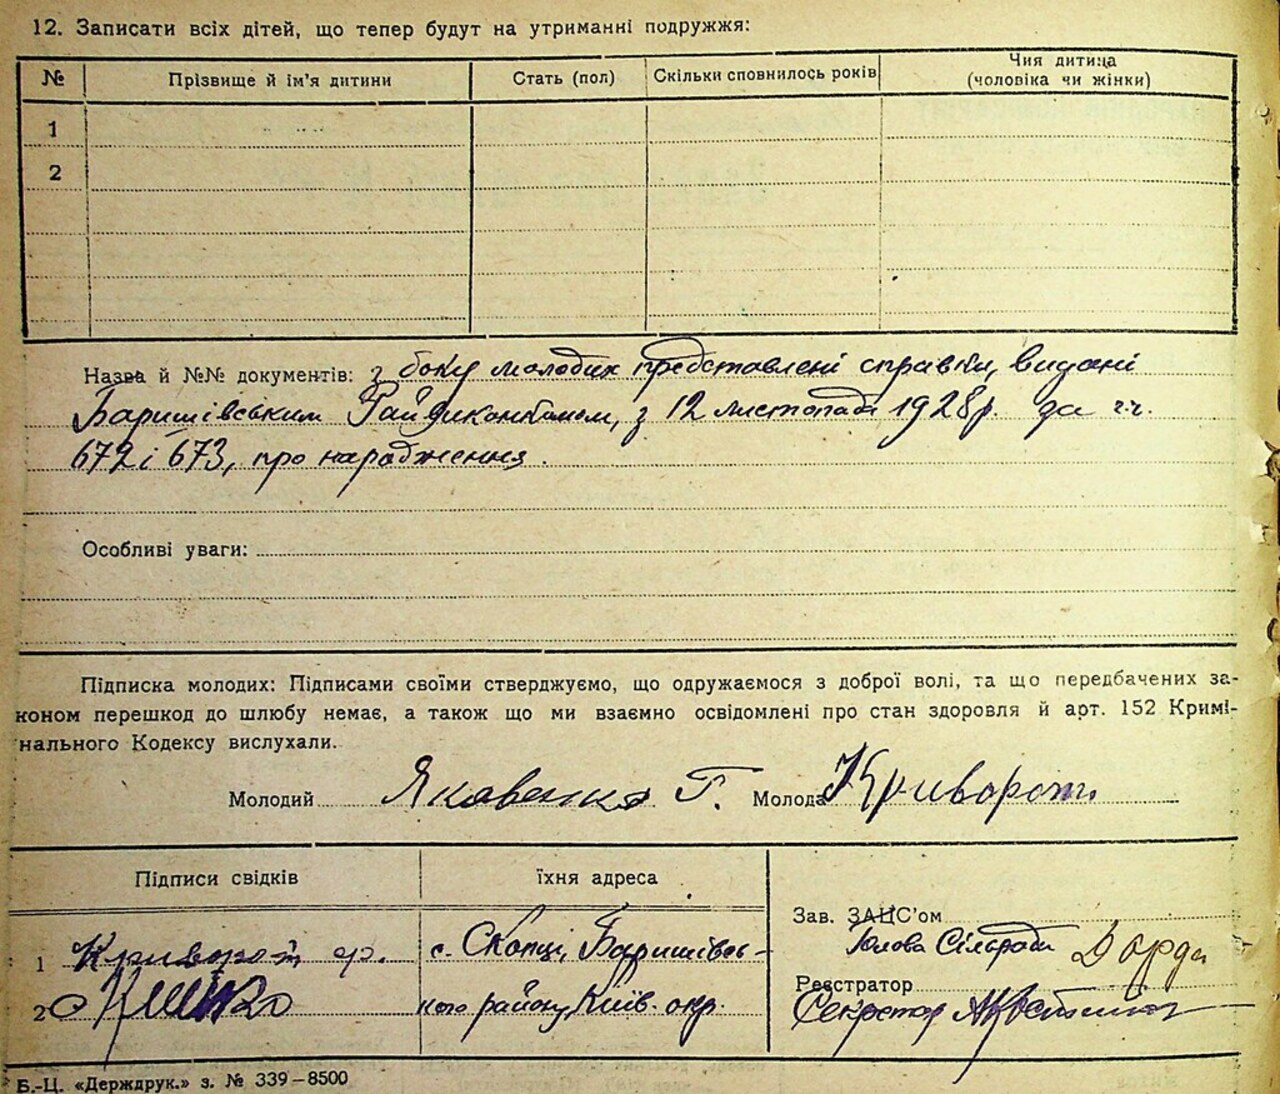 12. Записати всіх дітей, що тепер будут на утриманні подружжя:
№ Прізвище й ім'я дитини Стать (пол) Скільки сповнилось років Чия дитина (чоловіка чи жінки)
1
2
Назва й №№ документів: з боку молодих представлені справки, видані
Баришівським Райвиконкомом, з 12 листопада 1928р. за ч.ч.
672 і 673, про народження.
Особливі уваги:
Підписка молодих: Підписами своїми стверджуємо, що одружаємося з доброї волі, та що передбачених за-
коном перешкод до шлюбу немає, а також що ми взаємно освідомлені про стан здоровля й арт. 152 Кримі-
нального Кодексу вислухали.
Молодий Яковенко Г. Молода Криворот
Підписи свідків їхня адреса
Зав. ЗАЦС'ом
Голова Сільради
1 Криворот с. Скопці, Баришівсь-
Реєстратор
2 кого району, Київ. окр.
Секретар
Б.-Ц. «Держдрук.» з. № 339–8500